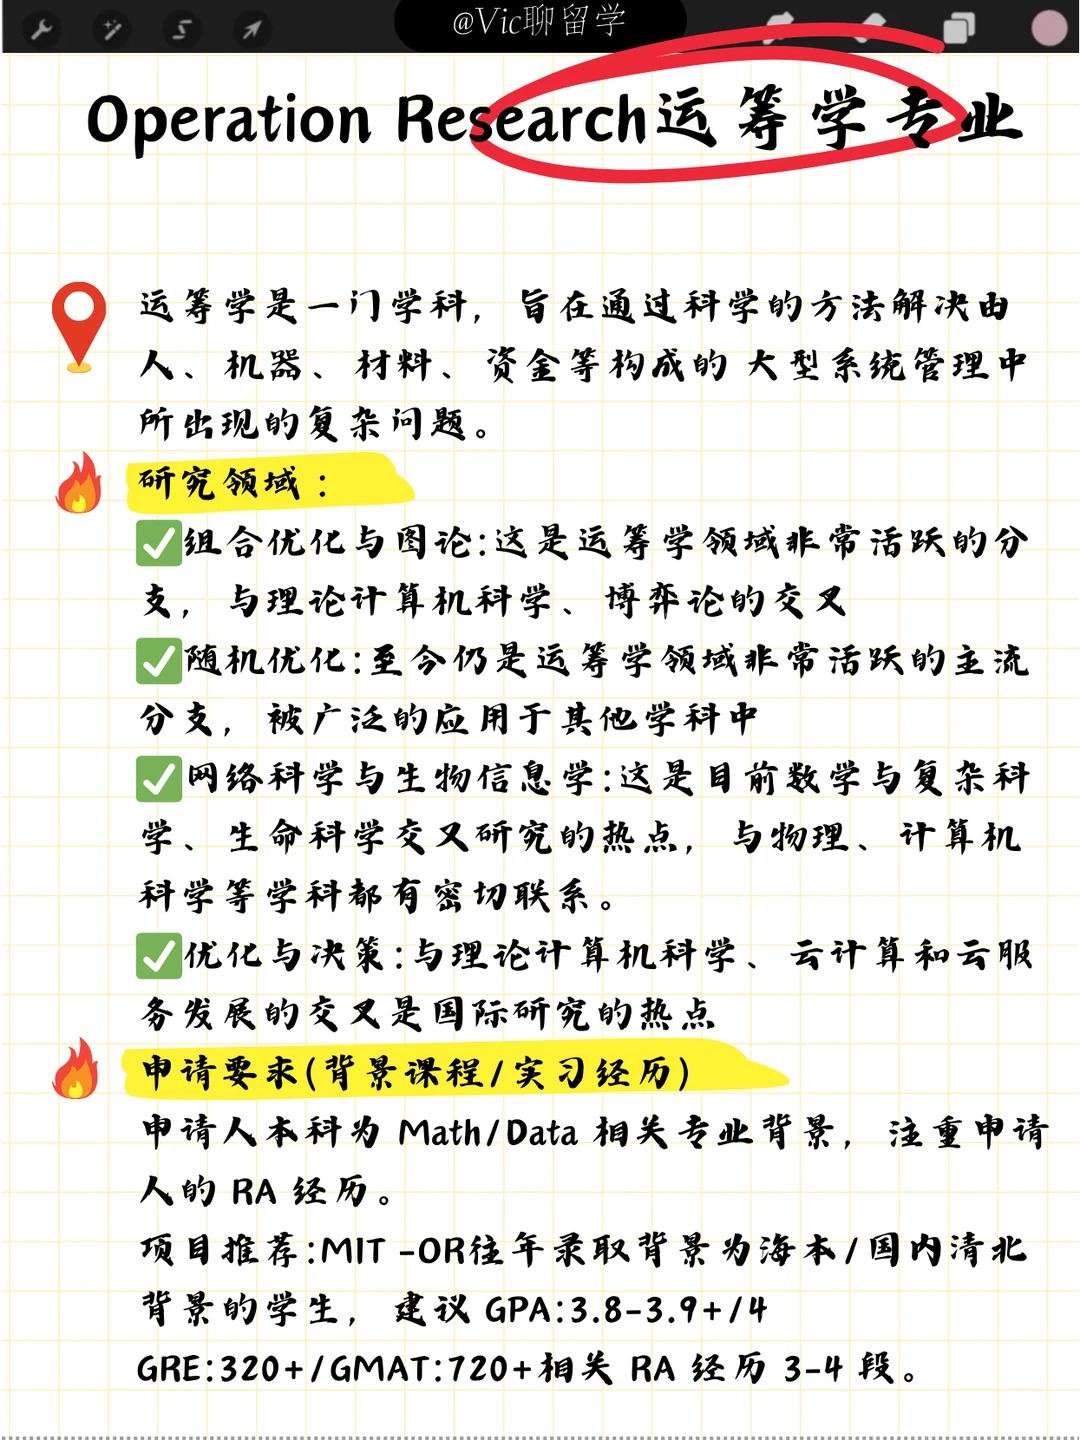 @Vic聊留学
Operation Research运筹学专业
运筹学是一门学科，旨在通过科学的方法解决由
人、机器、材料、资金等构成的 大型系统管理中
所出现的复杂问题。
研究领域：
✅组合优化与图论:这是运筹学领域非常活跃的分
支，与理论计算机科学、博弈论的交叉
✅随机优化:至今仍是运筹学领域非常活跃的主流
分支，被广泛的应用于其他学科中
✅网络科学与生物信息学:这是目前数学与复杂科
学、生命科学交叉研究的热点，与物理、计算机
科学等学科都有密切联系。
✅优化与决策:与理论计算机科学、云计算和云服
务发展的交叉是国际研究的热点
申请要求(背景课程/实习经历)
申请人本科为 Math/Data 相关专业背景，注重申请
人的 RA 经历。
项目推荐:MIT -OR往年录取背景为海本/国内清北
背景的学生，建议 GPA:3.8-3.9+/4
GRE:320+/GMAT:720+相关 RA 经历 3-4 段。